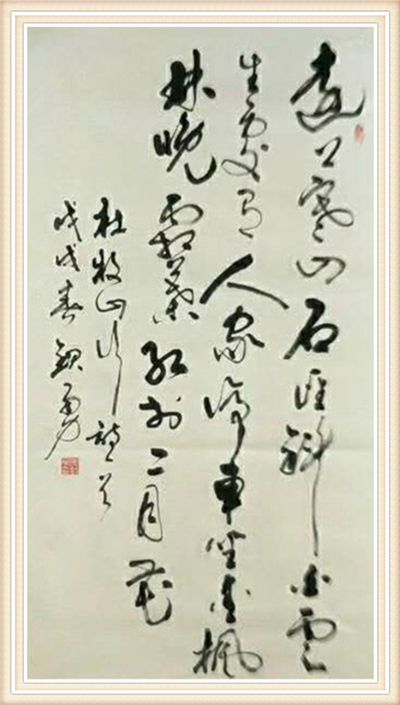 遠上寒山石径斜白雲
生處有人家停車坐爱楓
林晚霜葉红於二月花
杜牧山行詩
戊戌春勇